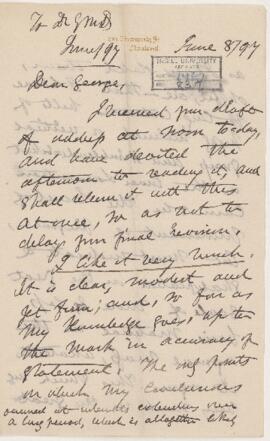 To Dr G M D
June/97
June 8/97
McGILL UNIVERSITY
ARCHIVES
Dear George,
I received your draft
of address at noon today,
and have devoted the
afternoon to reading it, and
shall return it with this
at once, so as not to
delay your final revision.
I like it very much.
It is clear, modest and
yet firm; and, so far as
my knowledge goes, up to
the mark in accuracy of
statement. The only points
on which my conclusions
over
a long period, which is altogether likely